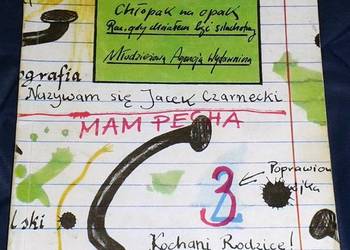 Chłopak na opak
Raz, gdy chciałem być szlachetny
Młodzieżowa Agencja Wydawnicza
ografia
Nazywam się Jacek Czarnecki
MAM PECHA
3
Poprawion
lski
Kochani Rodzice!